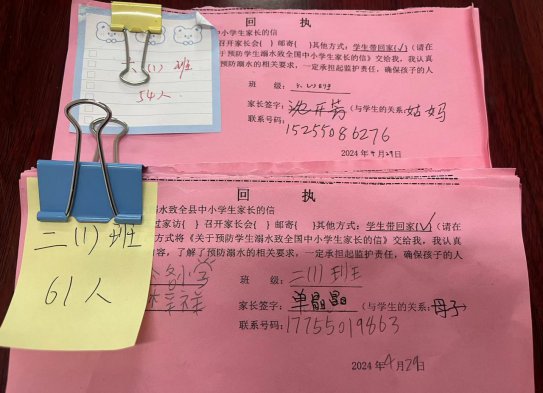 六(1)班
54人
回 执
中小学生家长的信
召开家长会( ) 邮寄{ }其他方式：学生带回家(√)(请在
于预防学生溺水致全国中小学生家长的信》交给我，我认真
预防溺水的相关要求，一定承担起监护责任，确保孩子的人
班 级：六(1)班
家长签字：(与学生的关系：姑妈
联系号码：15255086276
2024年4月29日
二(1)班
61人
回 执
溺水致全县中小学生家长的信
过家访{ }召开家长会( ) 邮寄{ }其他方式：学生带回家(√)(请在
方式将《关于预防学生溺水致全国中小学生家长的信》交给我，我认真
容，了解了预防溺水的相关要求，一定承担起监护责任，确保孩子的人
小学
班 级：二(1)班
家长签字：单晶晶(与学生的关系：母子
联系号码：17755019863
2024年4月29日